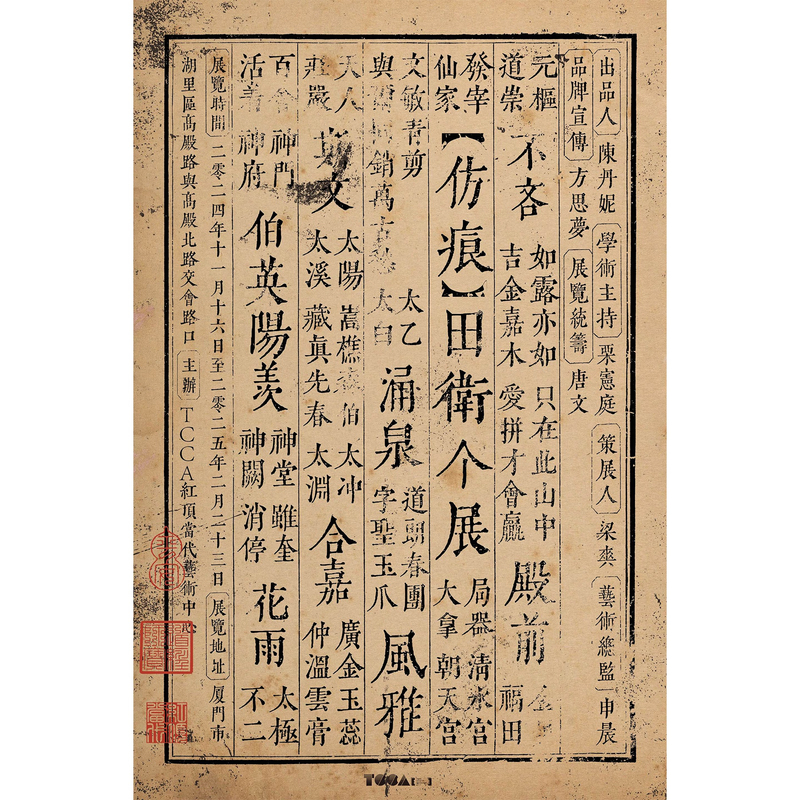 出品人 陳丹妮 學術主持 栗憲庭 策展人 梁爽 藝術總監 申晨
品牌宣傳 方思夢 展覽統籌 唐文
元樞 道崇 不吝 如露亦如 吉金嘉木 只在此山中 愛拼才會贏 殿前 福田
發宰 仙家 【仿痕】田衛个展 局器 大拿 清水宮 朝天宮
文敏青剪 與 銷萬古愁 太乙 太白 涌泉 道朝春團 字聖玉爪 風雅
天人 莊嚴 斯文 太陽 太溪 嵩樵森伯 藏真先春 太冲 太淵 合嘉 廣金玉蕊 仲溫雲膏
百會 活着 神門 神府 伯英陽羨 神堂 神闕 雖奎 消停 花雨 太極 不二
展覽時間 二零二四年十一月十六日至二零二五年二月二十三日 展覽地址 厦門市
湖里區高殿路與高殿北路交會路口 主辦 TCCA紅頂當代藝術中心
TCCA